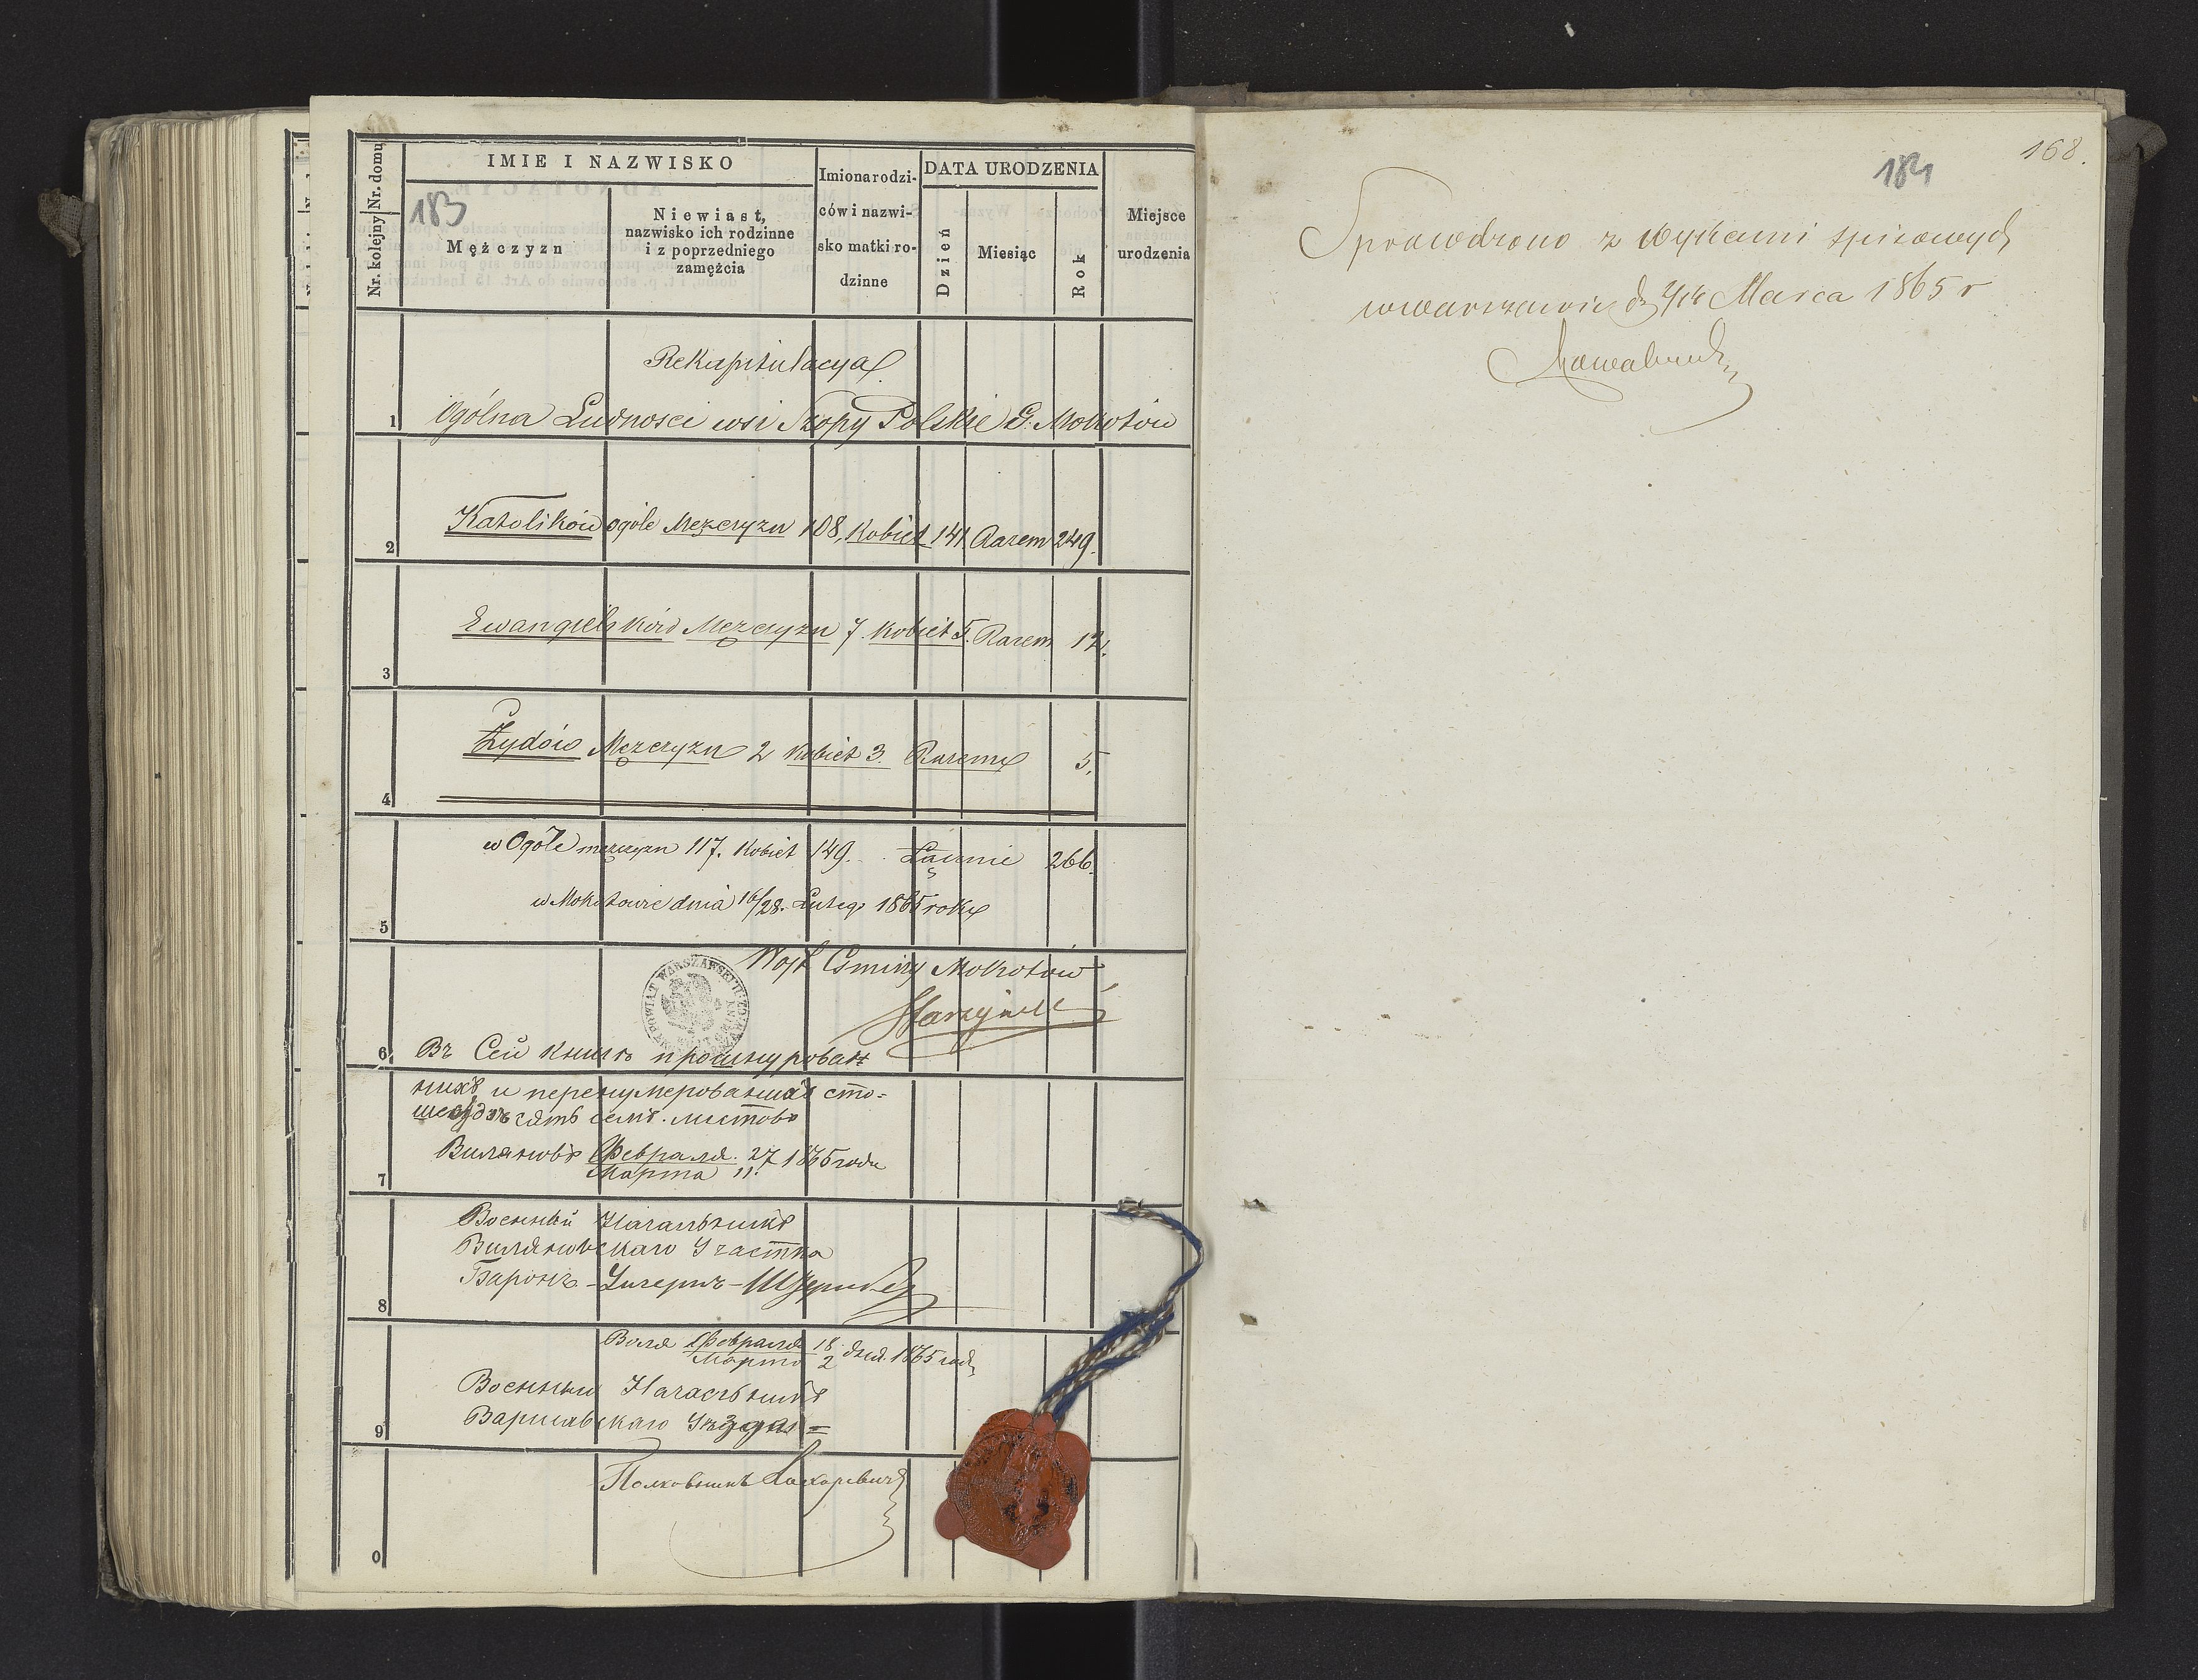 Nr. kolejny Nr. domu
IMIE I NAZWISKO
183
Mężczyzn
Niewiast,
nazwisko ich rodzinne
i z poprzedniego
zamężcia
Imiona rodzi-
ców i nazwi-
sko matki ro-
dzinne
DATA URODZENIA
Dzień
Miesiąc
Rok
Miejsce
urodzenia
Rekapitulacya
1 Ogólna Ludnosci wsi Szopy Polskie G. Mokotów
2 Katolików ogóle Mężczyzn 108, Kobiet 141 Razem 249.
3 Ewangielików Mężczyzn 7. Kobiet 5. Razem 12.
4 Żydów Mężczyzn 2 Kobiet 3. Razem 5.
w Ogóle mężczyzn 117. Kobiet 149. Łącznie 266.
5 w Mokotowie dnia 16/28. Lutego 1865 roku
Wójt Gminy Mokotów
6 Въ Сей книгѣ прошнурован
ныхъ и перенумерованныхъ сто=
шестьдесятъ семь листовъ
Вилановъ Февраля 27 1865 года
7 Марта 11.
Военный Начальникъ
Виляновскаго Участка
8 Баронъ
Воля Февраля 18 дня 1865 года
Марта 2
Военный Начальникъ
9 Варшавскаго Уѣзда =
Полковникъ
0
168.
184
Sprawdzono z wykazami spisowych
w Warszawie d 2/14 Marca 1865 r